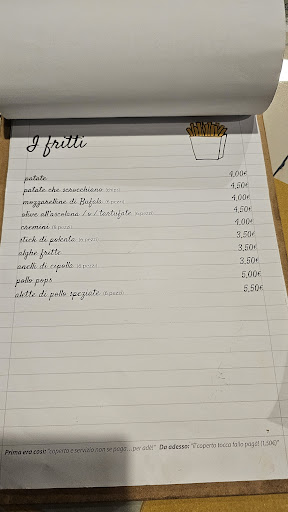 I fritti
patate 4,00€
patate che scrocchiano 4,50€
mozzarelline di Bufala (5 pezzi) 4,00€
olive all'ascolana /o/ tartufate 4,50€
cremini (5 pezzi) 4,00€
stick di polenta (6 pezzi) 3,50€
alghe fritte 3,50€
anelli di cipolla (6 pezzi) 3,50€
pollo pops 5,00€
alette di pollo speziate (6 pezzi) 5,50€
Prima era così: "coperto e servizio non se paga... per adè!" Da adesso: "il coperto tocca fallo pagà! (1,50€)"